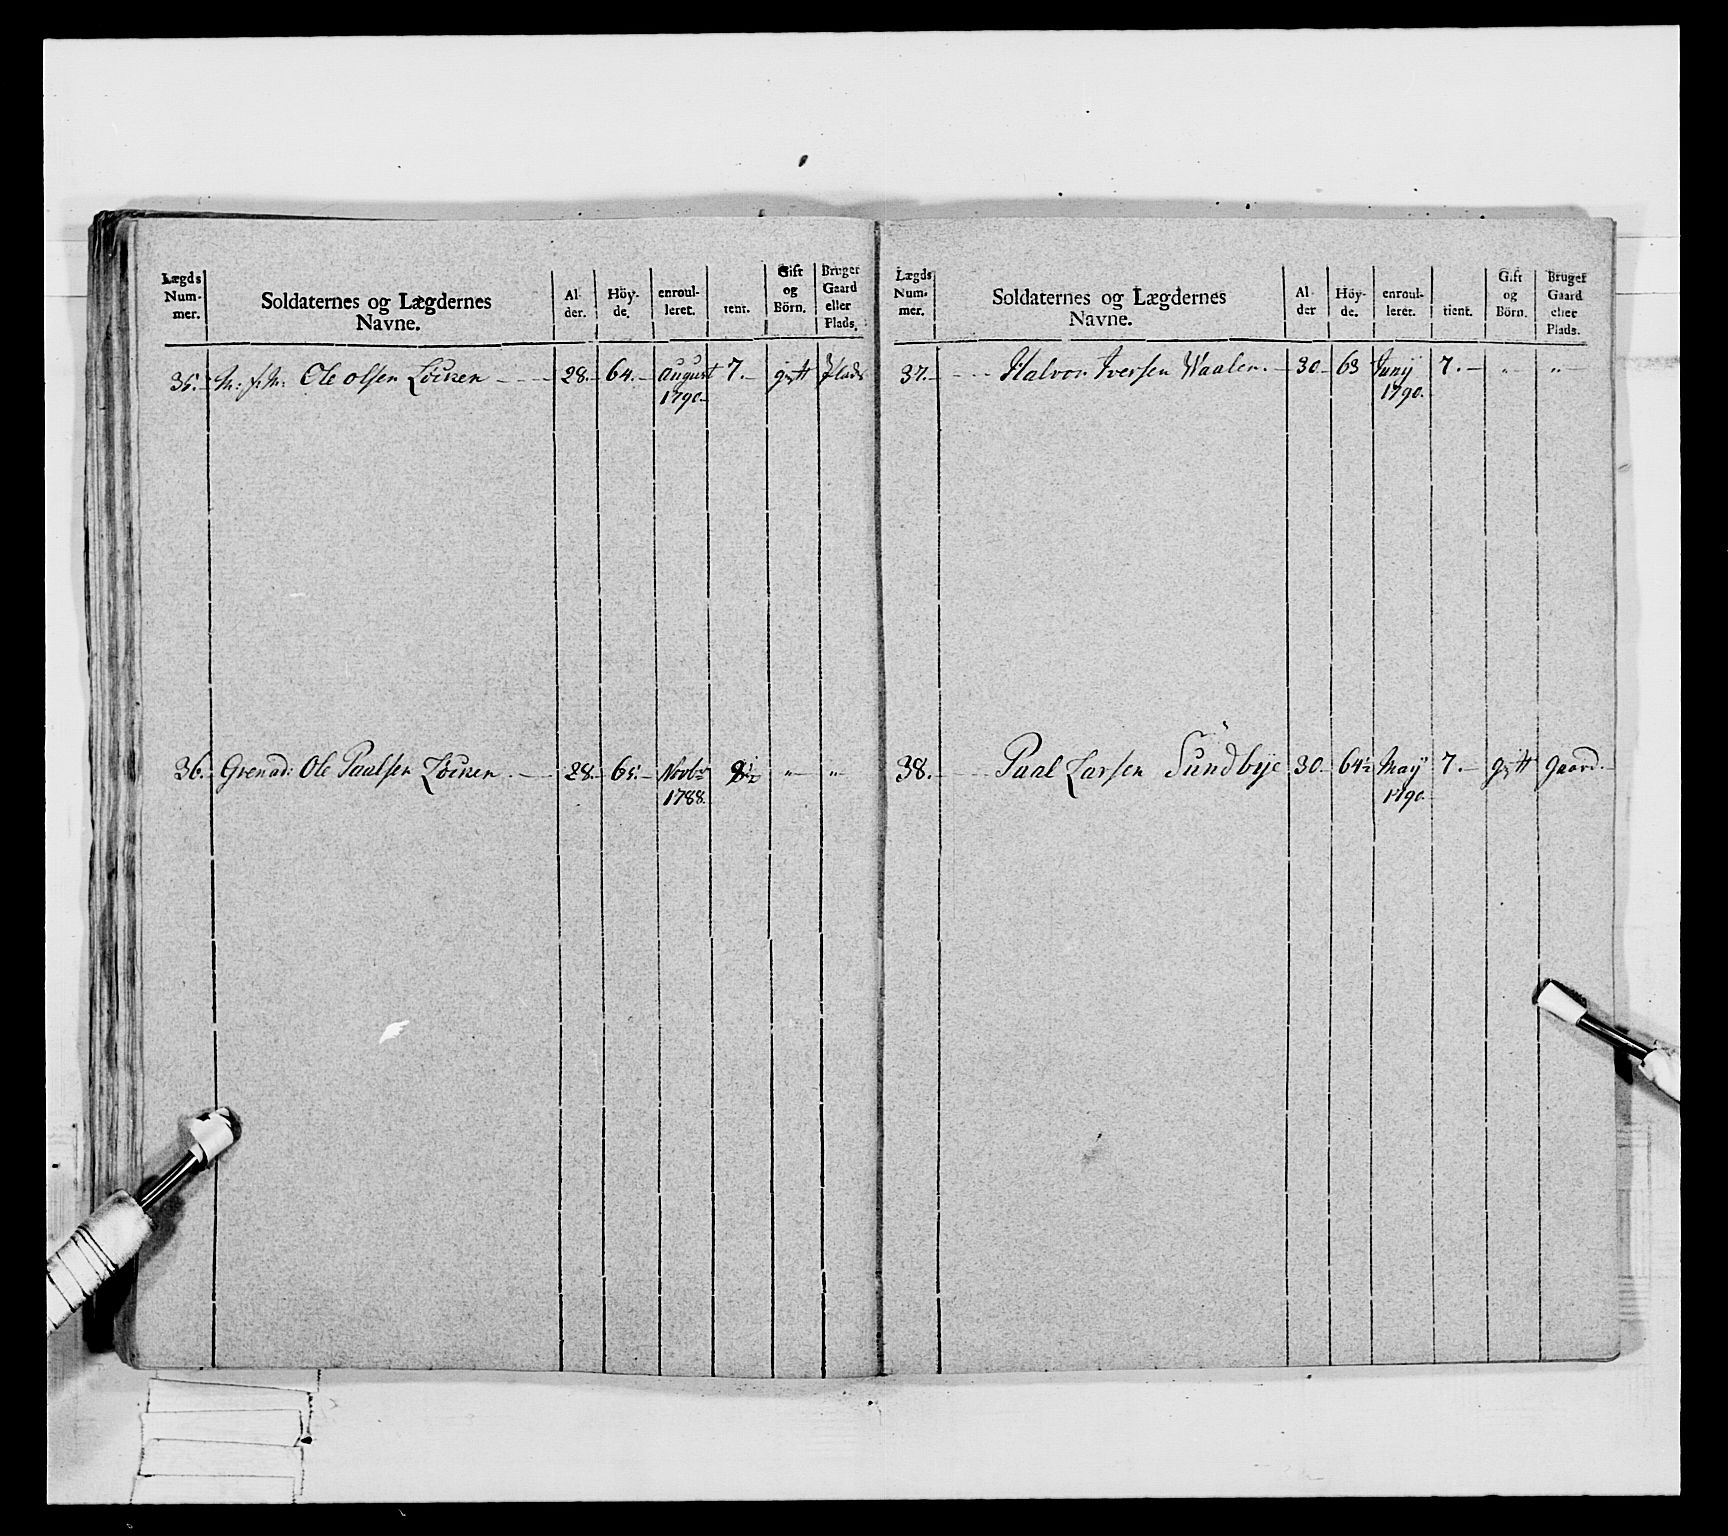 Lægds Num- mer.
Soldaternes og Lægdernes Navne.
Al- der.
Höy- de.
enroul- leret.
tient.
Gift og Börn.
Bruger Gaard eller Plads.
35. Ole olsen Löcken 28. 64. august 7. gift Plads
1790
36. Grenad: Ole Paalsen Löcken 28. 65. Novbr 8½ " "
1788.
Lægds Num- mer.
Soldaternes og Lægdernes Navne.
Al- der
Höy- de.
enroul- leret.
tient.
Gift og Börn.
Bruger Gaard eller Plads.
37. Halvor Iversen Waalen. 30 63 Junij 7. " "
1790.
38. Paal Larsen Sundbye 30 64½ Maij 7. gift gaard.
1790.